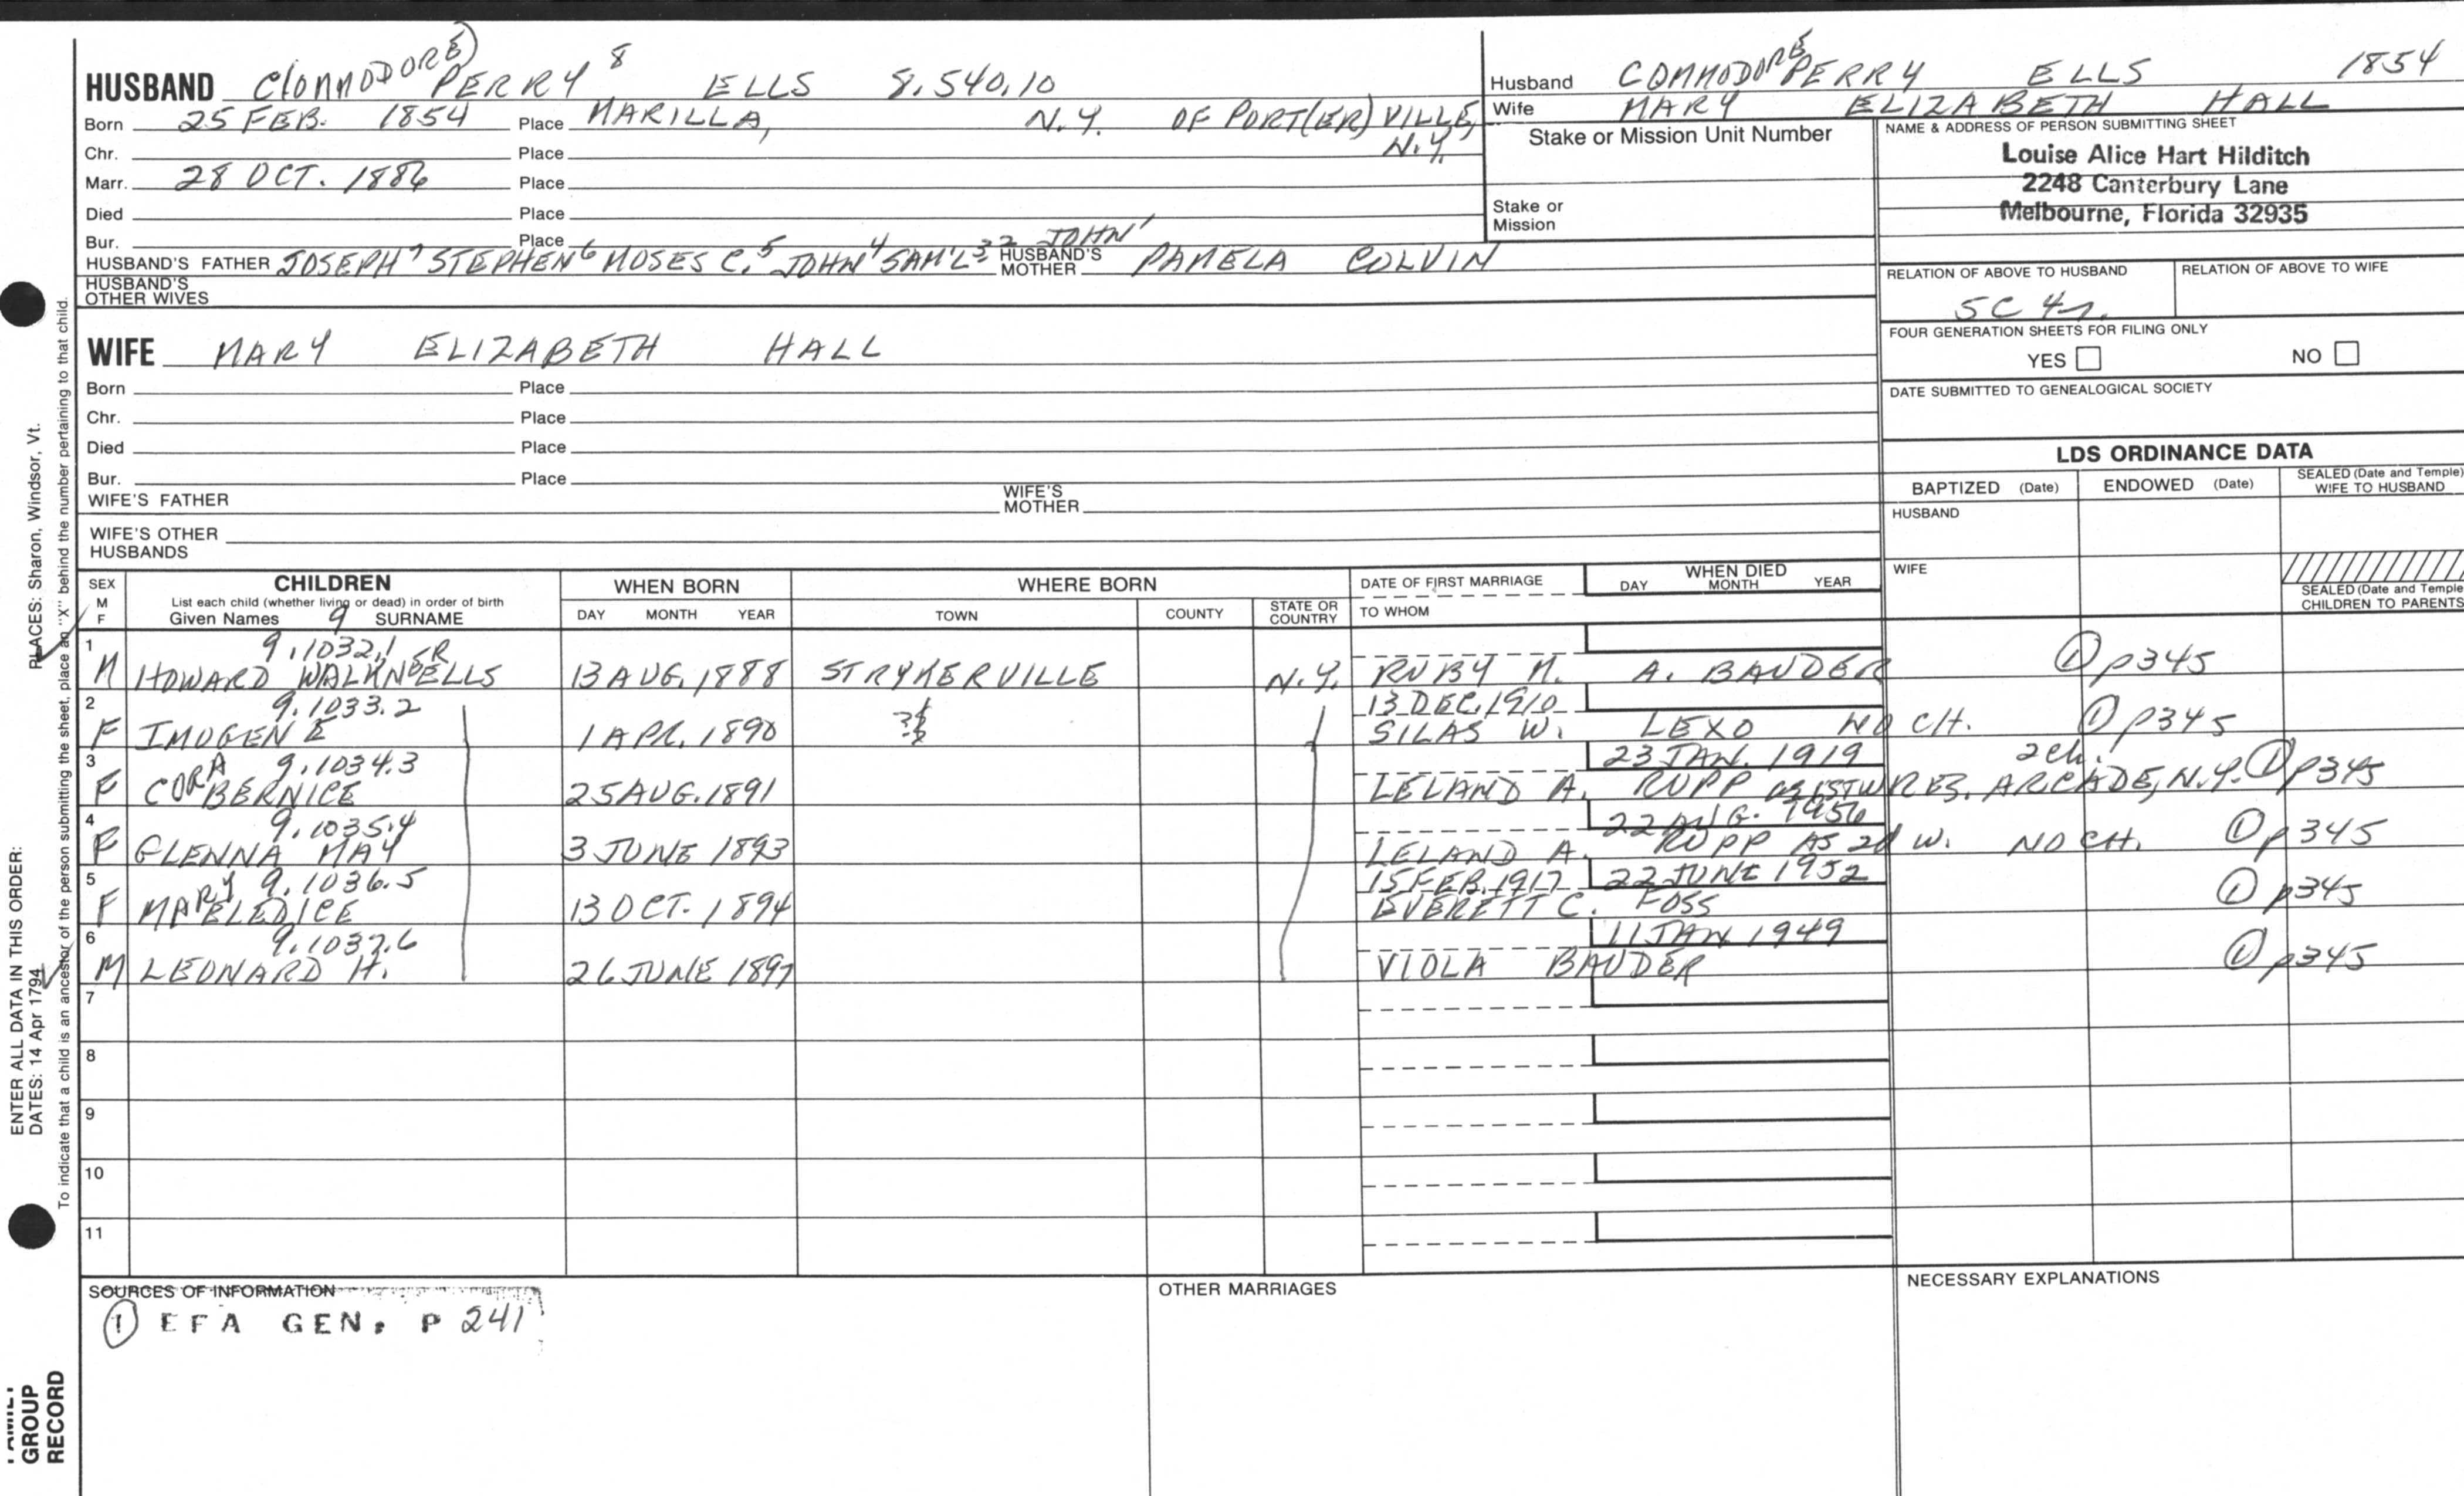 HUSBAND C(OMMODORE) PERRY 8 ELLS 8.540.10
Born 25 FEB. 1854 Place MARILLA, N.Y. OF PORT(ER)VILLE, N.Y.
Chr. Place
Marr. 28 OCT. 1886 Place
Died Place
Bur. Place
HUSBAND'S FATHER JOSEPH 7 STEPHEN 6 MOSES C. 5 JOHN 4 SAM'L 3 2 JOHN 1 HUSBAND'S MOTHER PAMELA COLVIN
HUSBAND'S
OTHER WIVES
WIFE MARY ELIZABETH HALL
Born Place
Chr. Place
Died Place
Bur. Place
WIFE'S FATHER WIFE'S MOTHER
WIFE'S OTHER
HUSBANDS
Husband COMMODORE PERRY ELLS 1854
Wife MARY ELIZABETH HALL
Stake or Mission Unit Number
Stake or
Mission
NAME & ADDRESS OF PERSON SUBMITTING SHEET
Louise Alice Hart Hilditch
2248 Canterbury Lane
Melbourne, Florida 32935
RELATION OF ABOVE TO HUSBAND RELATION OF ABOVE TO WIFE
5C 4r.
FOUR GENERATION SHEETS FOR FILING ONLY
YES NO
DATE SUBMITTED TO GENEALOGICAL SOCIETY
LDS ORDINANCE DATA
BAPTIZED (Date) ENDOWED (Date) SEALED (Date and Temple) WIFE TO HUSBAND
HUSBAND
WIFE
SEALED (Date and Temple
CHILDREN TO PARENTS
SEX M F
CHILDREN
List each child (whether living or dead) in order of birth
Given Names 9 SURNAME
WHEN BORN
DAY MONTH YEAR
WHERE BORN
TOWN COUNTY STATE OR COUNTRY
DATE OF FIRST MARRIAGE
TO WHOM
WHEN DIED
DAY MONTH YEAR
1 9.1032.1 SR
M HOWARD ELLS 13 AUG. 1888 STRYKERVILLE N.Y. RUBY M. A. BAUDER ① p345
2 9.1033.2 13 DEC. 1910
F IMOGENE 1 APR. 1890 SILAS W. LEXO NO CH. ① p345
3 9.1034.3 23 JAN. 1919 2ch.
F CORA BERNICE 25 AUG. 1891 LELAND A. RUPP AS 1ST W RES. ARCADE, N.Y. ① p345
4 9.1035.4 22 AUG. 1956
F GLENNA MAY 3 JUNE 1893 LELAND A. RUPP AS 2d W. NO CH. ① p345
5 9.1036.5 15 FEB. 1917 22 JUNE 1952
F MARY 13 OCT. 1894 EVERETT C. FOSS ① p345
6 9.1037.6 11 JAN 1949
M LEONARD H. 26 JUNE 1897 VIOLA BAUDER ① p345
7
8
9
10
11
SOURCES OF INFORMATION
① EFA GEN. P 241
OTHER MARRIAGES
NECESSARY EXPLANATIONS
ENTER ALL DATA IN THIS ORDER:
DATES: 14 Apr 1794 PLACES: Sharon, Windsor, Vt.
To indicate that a child is an ancestor of the person submitting the sheet, place an "X" behind the number pertaining to that child.
FAMILY
GROUP
RECORD